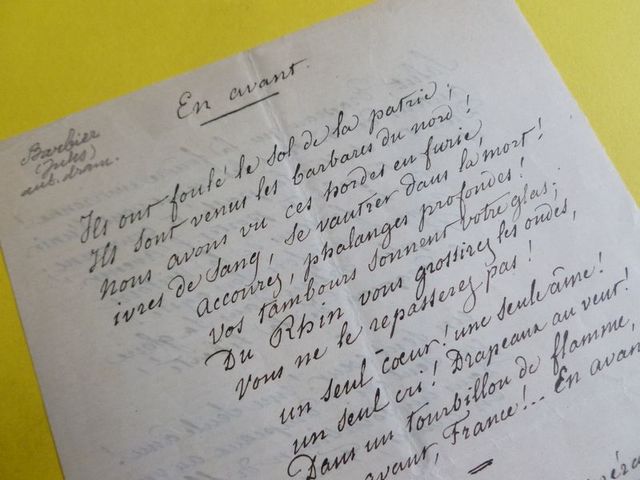 En avant.
Barbier
(Jules)
aut. dram.
Ils ont foulé le sol de la patrie ;
Ils sont venus les barbares du nord !
nous avons vu ces hordes en furie,
ivres de sang, se vautrer dans la mort !
accourez, phalanges profondes !
vos tambours sonnent votre glas ;
Du Rhin vous grossirez les ondes,
vous ne le repasserez pas !
un seul cœur ! une seule âme !
un seul cri ! Drapeaux au vent !
Dans un tourbillon de flamme,
avant, France !.. En avan